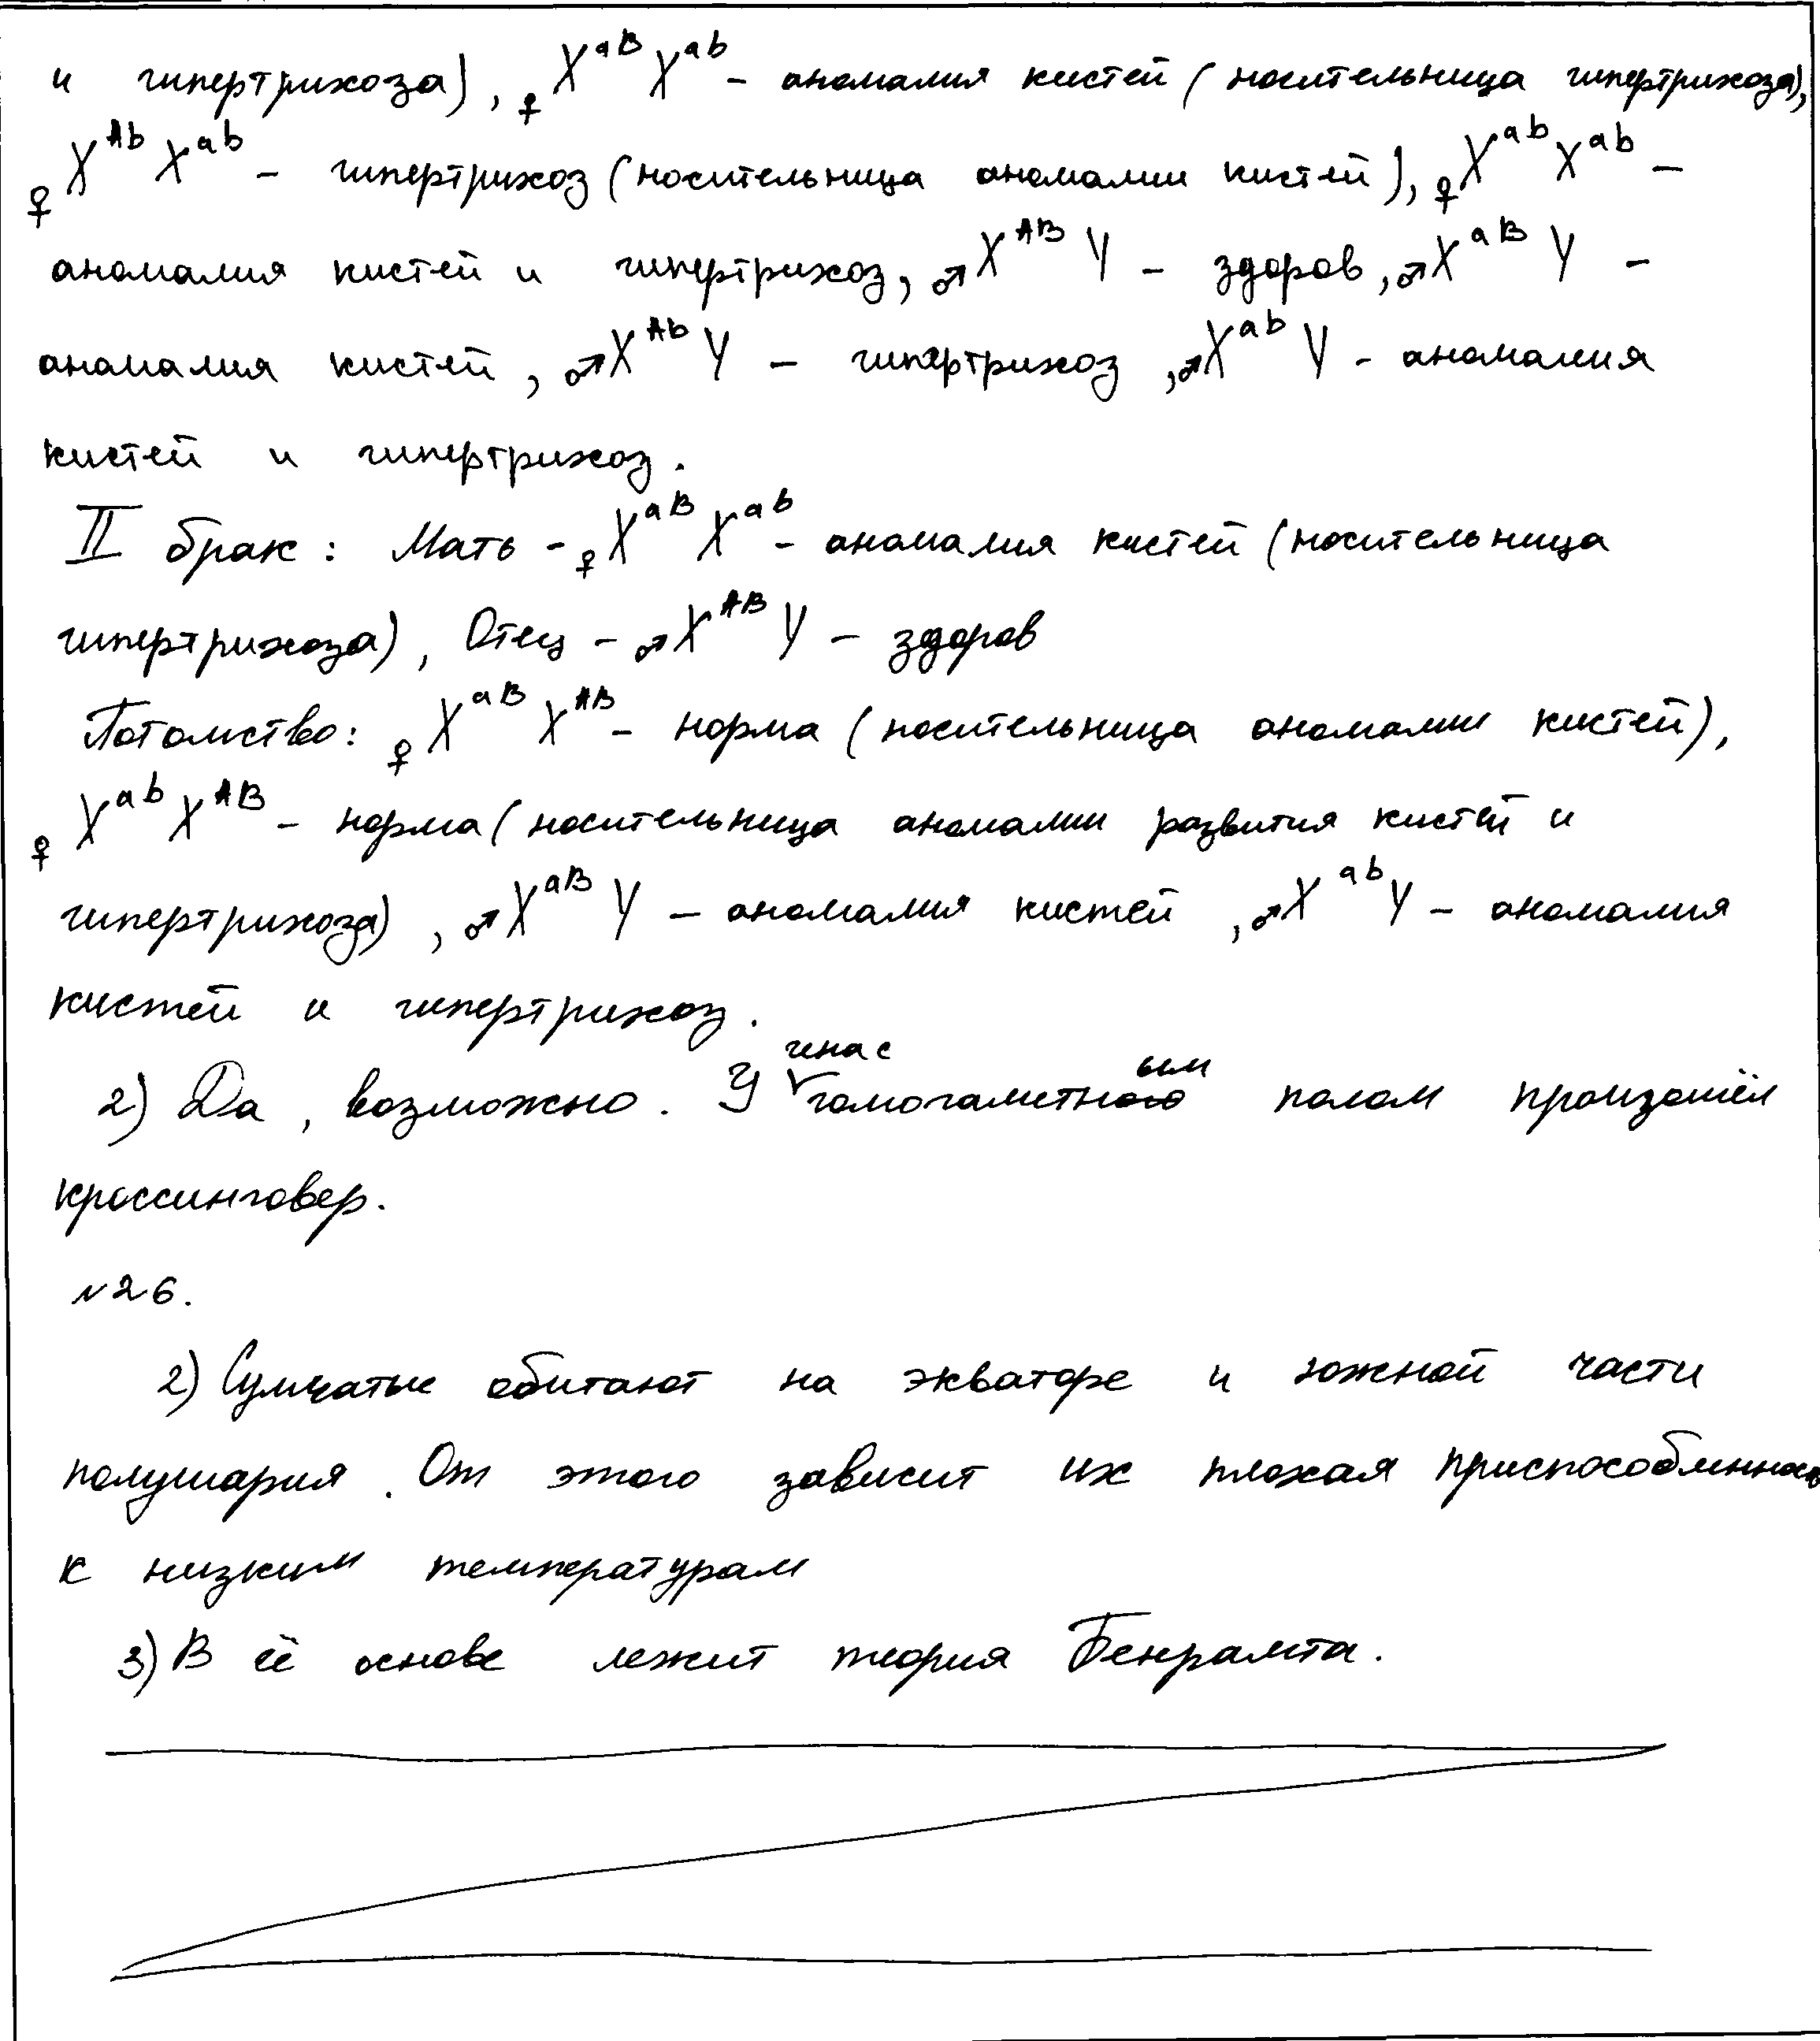 и гипертрихоза), ♀X^aB X^ab - аномалия кистей (носительница гипертрихоза),
♀X^Ab X^ab - гипертрихоз (носительница аномалии кистей), ♀X^ab X^ab -
аномалия кистей и гипертрихоз, ♂X^AB Y - здоров, ♂X^aB Y -
аномалия кистей, ♂X^Ab Y - гипертрихоз, ♂X^ab Y - аномалия
кистей и гипертрихоз.
II брак: Мать - ♀X^aB X^ab - аномалия кистей (носительница
гипертрихоза), Отец - ♂X^AB Y - здоров
Потомство: ♀X^aB X^AB - норма (носительница аномалии кистей),
♀X^ab X^AB - норма (носительница аномалии развития кистей и
гипертрихоза), ♂X^aB Y - аномалия кистей, ♂X^ab Y - аномалия
кистей и гипертрихоз.
2) Да, возможно. У гомогаметным полом произошёл
кроссинговер.
№26.
2) Сумчатые обитают на экваторе и южной части
полушария. От этого зависит их плохая приспособленность
к низким температурам
3) В её основе лежит теория